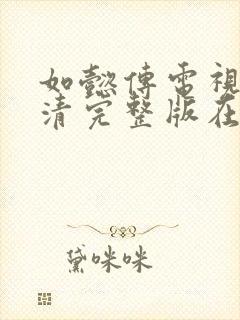 如懿傳電視
清完整版在
黛咪咪